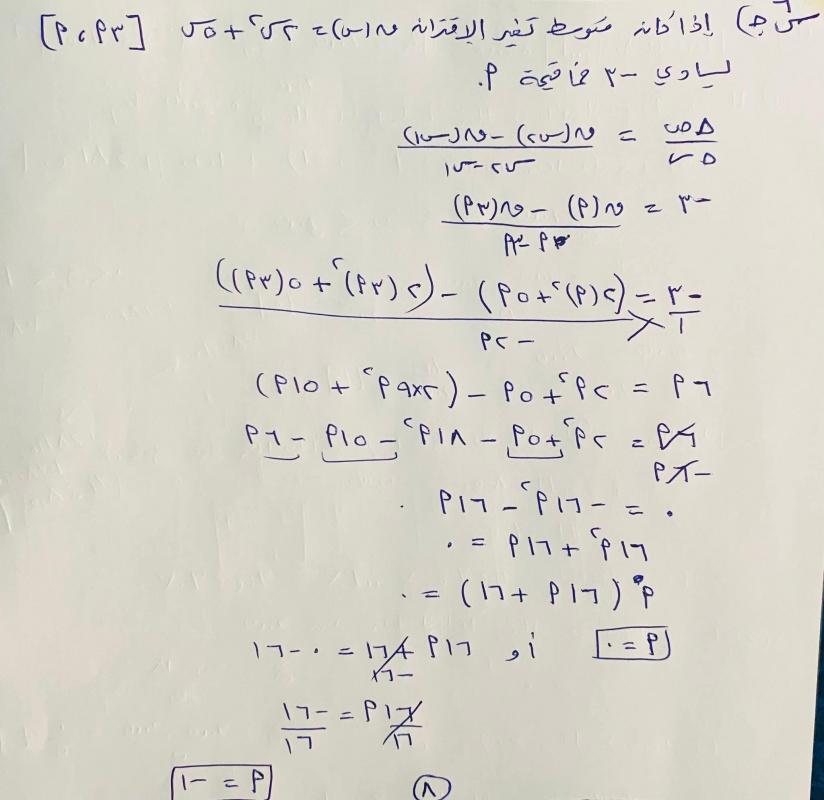 س٤ج) إذا كانه متوسط تغير الإقترانه ن(س)= ٢س² + ٥س [٣م ، م]
يساوي -٣ فما قيمة م.
Δص/Δس = (ن(س٢) - ن(س١))/(س٢ - س١)
-٣ = (ن(م) - ن(٣م))/(م - ٣م)
-٣/١ = ((٢(م)² + ٥م) - (٢(٣م)² + ٥(٣م)))/(-٢م)
٦م = ٢م² + ٥م - (٢×٩م² + ١٥م)
٦م = ٢م² + ٥م - ١٨م² - ١٥م - ٦م
-٦م
٠ = -١٦م² - ١٦م
١٦م² + ١٦م = ٠
م(١٦م + ١٦) = ٠
م = ٠ أو ١٦م + ١٦ = ٠ - ١٦
-١٦
١٦م/١٦ = -١٦/١٦
م = -١
٨